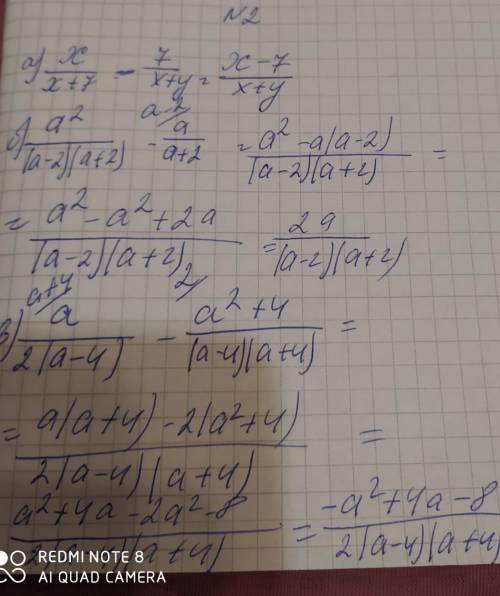 N2
а) x/(x+7) - 7/(x+y) = (x-7)/(x+y)
б) a²/((a-2)(a+2)) - a/(a+2) (a-2 = (a² - a(a-2))/((a-2)(a+2)) =
= (a² - a² + 2a)/((a-2)(a+2)) = 2a/((a-2)(a+2))
в) a/(2(a-4)) (a+4 - (a²+4)/((a-4)(a+4)) (2 =
= (a(a+4) - 2(a²+4))/(2(a-4)(a+4)) =
(a²+4a-2a²-8)/(2(a-4)(a+4)) = (-a²+4a-8)/(2(a-4)(a+4)
REDMI NOTE 8
AI QUAD CAMERA